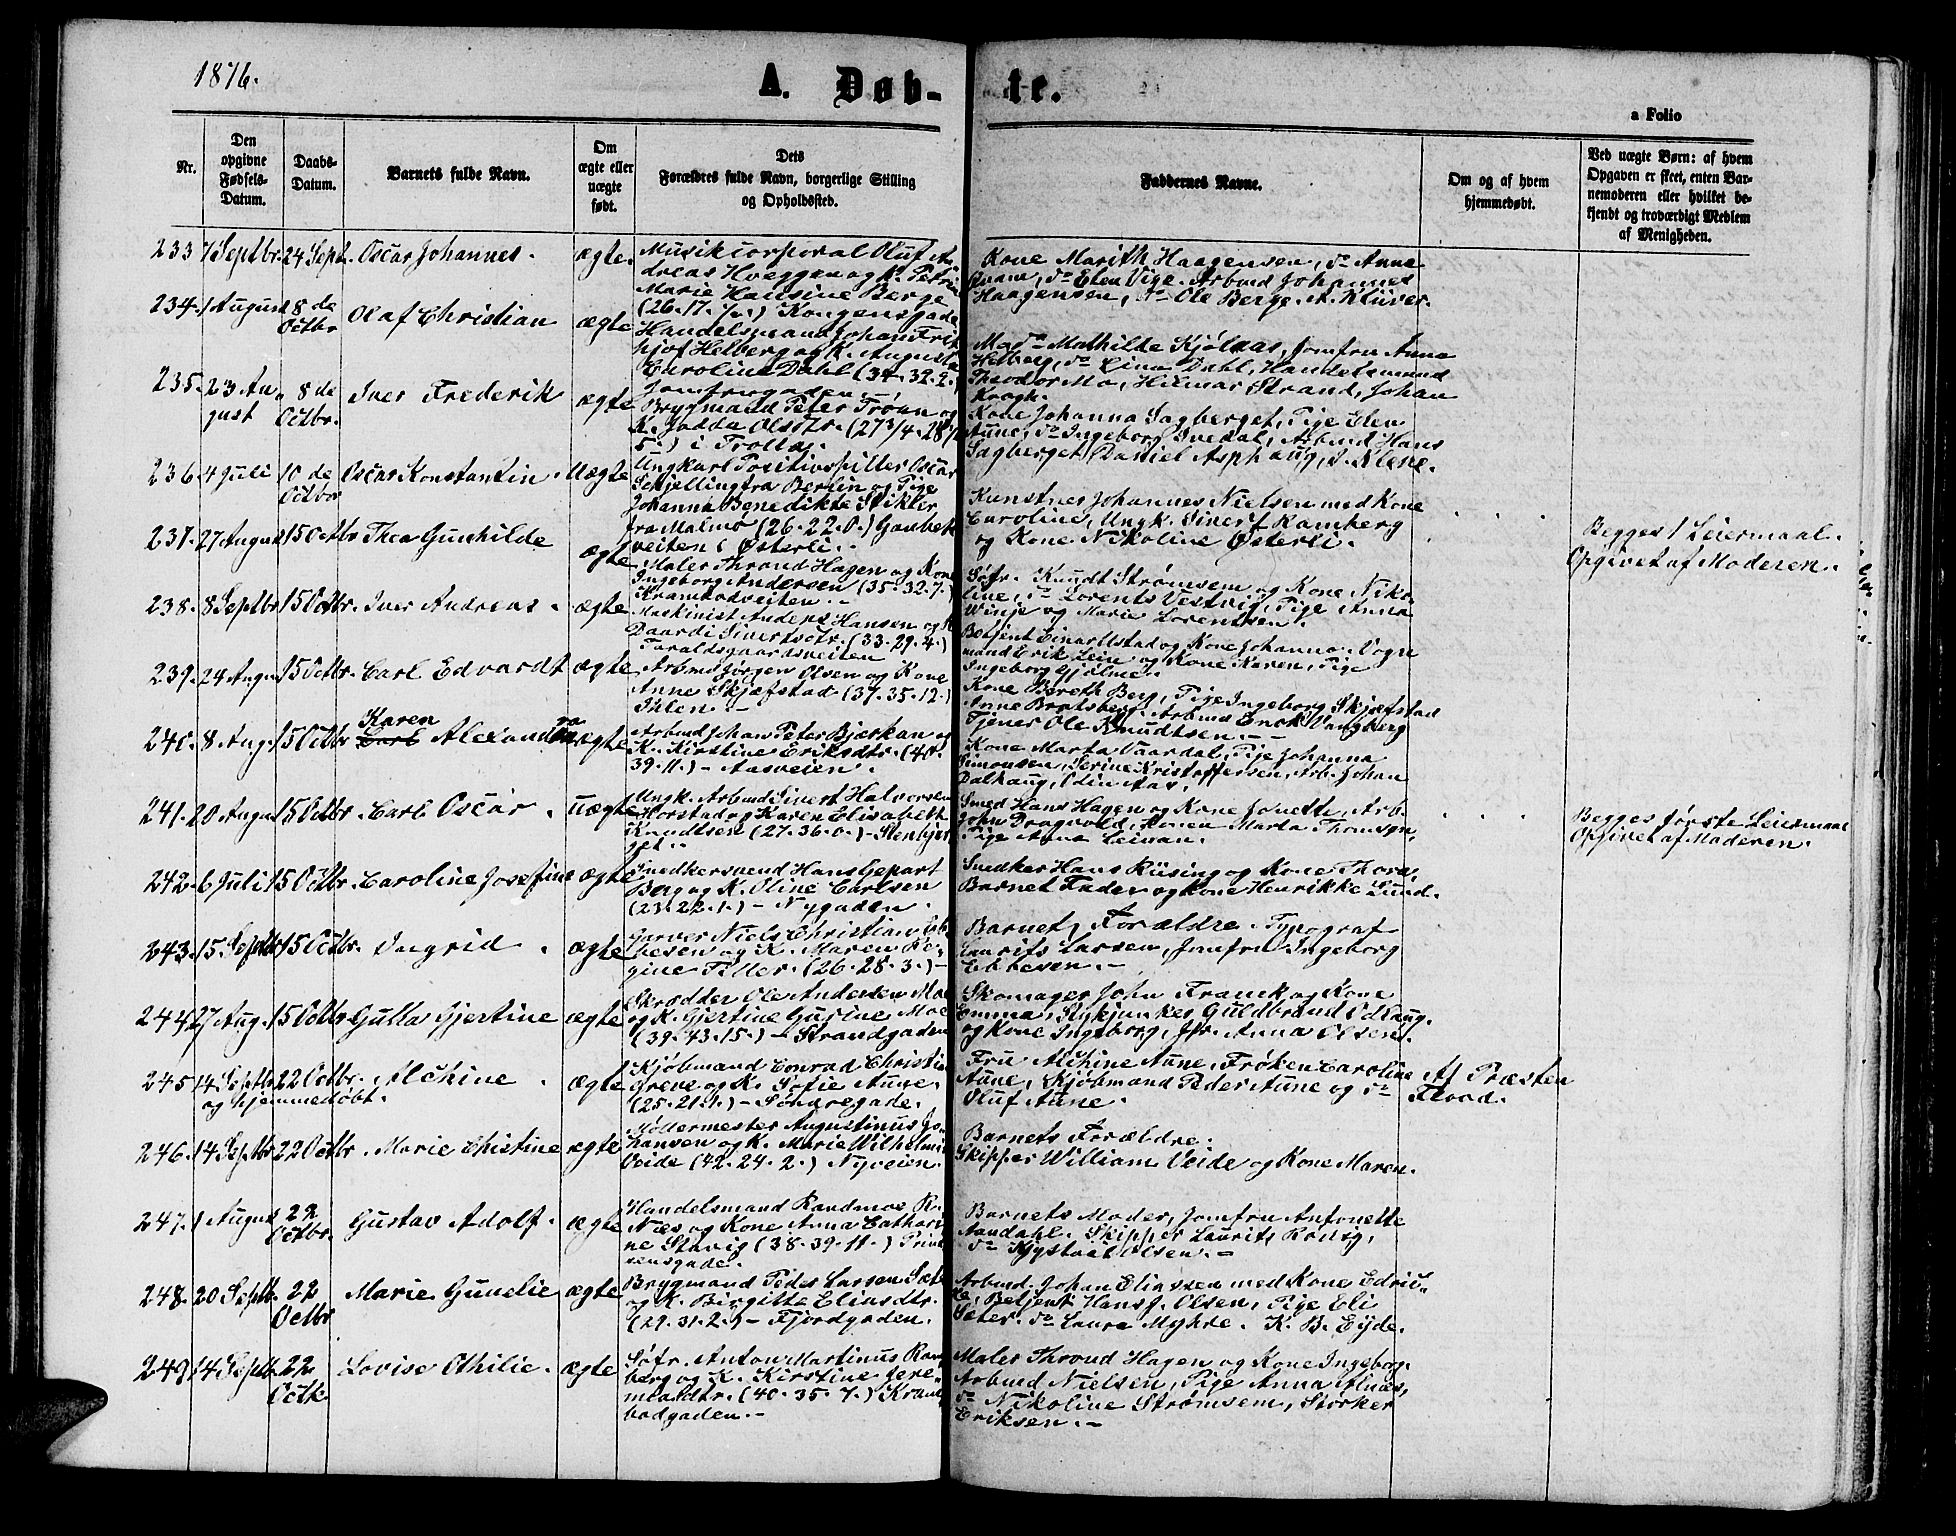 1876.
A. Døb-
te.
a Folio
Nr.
Den opgivne Fødsels-Datum.
Daabs-Datum.
Barnets fulde Navn.
Om ægte eller uægte født.
Dets
Forældres fulde Navn, borgerlige Stilling
og Opholdssted.
Faddernes Navne.
Om og af hvem
hjemmedøbt.
Ved uægte Børn: af hvem
Opgaven er skeet, enten Bar-
nemoderen eller hvilket be-
kjendt og troværdigt Medlem
af Menigheden.
233 7 Septbr. 24 Sept. Oscar Johannes. ægte.
Musikcorporal Oluf An
dreas Hoeggen og K. Petrin
Marie Hansine Berge
(26. 17. ) Kongensgade
Kone Marith Haagensen, do Anne
Qvam, do Elen Vige. Arbmd Johannes
Haagensen, do Ole Berge. A. Klüver.
234. 1 August 8 de Octbr Olaf Christian ægte
Handelsmand Johan Frit
hjof Helberg og K. Augusta
Caroline Dahl (34. 32. 2.)
Jomfrugaden.
Mad. Mathilde Kjølaas, Jomfru Anna
Helberg, do Lina Dahl, Handelsmand
Theodor Mo, Hilmar Strand, Johan
Krogh.
235. 23 Au gust 8 de Octbr. Iver Frederik ægte
Brygmand Peter Trøan og
K. Gjadda Olsdtr. (27 3/4. 28
5.) i Trolla.
Kone Johanna Sagberget, Pige Elen
Aune, do Ingeborg Ivedal, Arbmd Hans
Sagberget, Daniel Asphaug, J. Klene.
236. 4 Juli 10 de Octbr Oscar Konstantin. Uægte
Ungkarl Positivspiller Oscar
Schjelling fra Berlin og Pige
Johanna Benedikte Stikler
fra Malmø (26. 22. 0.) Gaubek
veiten i Østerli.
Kunstner Johannes Nielsen med Kone
Caroline, Ungk. Sivert Ramberg
og Kone Nikoline Østerli.
Begges 1 Leiermaal.
Opgivet af Moderen.
237. 27 August 15 Octbr Thea Gunhilde ægte
Maler Thrond Hagen og Kone
Ingeborg Andersen (35. 32. 7.)
Krambodveiten.
Søfr. Knudt Strømsem og Kone Niko
line, do Lorents Vestvig, Pige Anna
Winje og Marie Lorentsen.
238. 8 Septbr 15 Octbr. Iver Andreas. ægte
Maskinist Anders Hansen og K
Daardi Sivertsdtr. (33. 29. 4.)
Taraldsgaardsveiten
Betjent Einar Ustad og Kone Johanna. Vogn
mand Erik Lein og Kone Karen, Pige
Ingeborg Gjølme.
239. 24 Augu 15 Octbr. Carl Edvardt ægte
Arbmd Jørgen Olsen og Kone
Anne Skjefstad (37. 35. 12.)
Ihlen.
Kone Bereth Berg, Pige Ingeborg Skjefstad
Anne Bratsberg. Arbmd Enok Vangberg
Tjener Ole Knudtsen.
240. 8 Aug. 15 Octbr Karen Carl Alexandra ægte
Arbmd Johan Peter Bjerkan og
K. Kirstine Eriksdtr. (40.
39. 11.) Aasveien.
Kone Marta Vaardal, Pige Johanna
Simonsen, Serine Kristoffersen, Arb. Johan
Dalhaug, Odin Aas.
241. 20 August 15 Octbr. Carl Oscar. uægte
Ungk. Arbmd Sivert Halvorsen
Horstad og Karen Elisabeth
Knudtsen (27. 36. 0.) Stenbjer
get.
Smed Hans Hagen og Kone Jonette, Arb.
John Dragvold, Konen Marta Thomsen,
Pige Anna Leinan.
Begges første Leiermaal
Opgivet af Moderen.
242. 6 Juli 15 Octbr. Caroline Josefine ægte
Snedkersvend Hans Gepart
Berg og K. Oline Carlsen
(23. 22. 1.) Nygaden.
Snedker Hans Riising og Kone Thora,
Barnet Fader og Kone Henrikke Lund.
243. 15 Septbr 15 Octbr. Ingrid. ægte
Garver Niels Christian Eb
besen og K. Maren Re
gine Tiller. (26. 28. 3.)
Barnets Forældre. Typograf
Laurits Larsen, Jomfru Ingeborg
Ebbesen.
244 27 Aug. 15 Octbr Gulla Gjertine ægte
Skrædder Ole Andersen Moe
og K. Gjertine Gurine Moe
(39. 43. 15.) Strandgaden
Skomager John Franck og Kone
Emma, Stykjunker Guldbrand Odlaug.
og Kone Ingeborg, Jfr. Anna Olsen.
245 14 Septbr 22 Octbr. Alchine. ægte
og hjemmedøbt.
Kjøbmand Conrad Christia
Greve og K. Sofie Aune.
(25. 21. 1.) Søndregade.
Fru Alchine Aune, Frøken Caroline
Aune, Kjøbmand Peder Aune og do
Oluf Aune.
Af Præsten
Flood.
246. 14 Septbr 22 Octbr. Marie Christine ægte
Møllermester Augustinus Jo
hansen og K. Marie Wilhelmi
Veide (42. 24. 2.) Nyveien
Barnets Forældre.
Skipper William Veide og Kone Maren.
247. 1 August 22 Octbr. Gustav Adolf. ægte
Handelsmand Randmoe R.
Næs og Kone Anna Cathari
ne Stavig (38. 39. 11.) Prind
sensgade.
Barnets Moder, Jomfru Antonette
Aandahl. Skipper Laurits Rodvig,
do Krystad Olsen.
248. 20 Septb. 22 Octbr Marie Gunelie ægte
Brygmand Peder Larsen Sæt
og K. Birgitte Eliasdtr.
(29. 31. 2.) Fjordgaden.
Arbmd. Johan Eliassen med Kone Edvic-
ke, Betjent Hans J. Olsen, Pige Eli
Seter. do Laura Myhre. K. B. Eyde.
249. 14 Septb. 22 Octb. Lovise Othilie. ægte
Søfr. Anton Martinus Ram
berg og K. Kirstine Jere
miasdtr. (40. 35. 7.) Kram
bodgaden.
Maler Thrond Hagen og Kone Ingeborg.
Arbmd Nielsen, Pige Anna Aluas,
do Nikoline Strømsem, Størker
Eriksen.